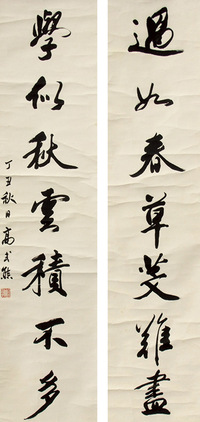 過如春草芟難盡
學似秋雲積不多
丁丑秋日高式熊